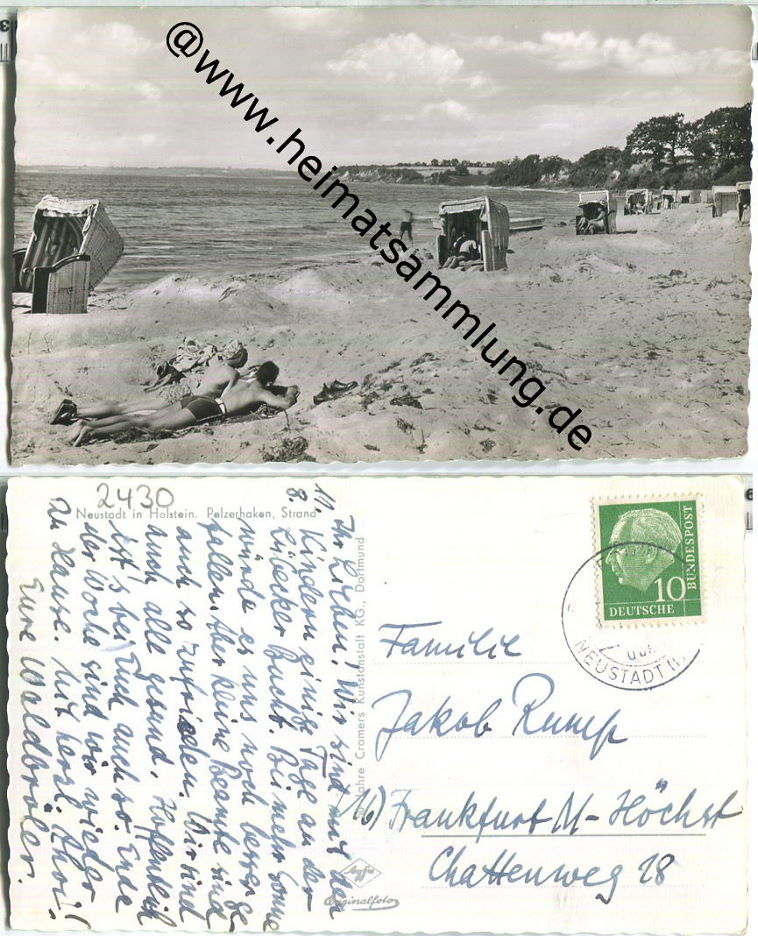 @www.heimatsammlung.de
2430
Neustadt in Holstein. Pelzerhaken, Strand
11. 8.
Ihr Lieben! Wir sind mit den
Kindern einige Tage an der
Lübecker Bucht. Bei mehr Sonne
würde es uns noch besser ge
fallen. Aber kleine Beamte sind
auch so zufrieden. Wir sind
auch alle gesund. Hoffentlich
ist's bei Euch auch so. Ende
der Woche sind wir wieder
zu Hause. Mit herzl. Ahoi!
Eure Waldbröler.
Jahre Cramers Kunstanstalt KG., Dortmund
Agfa
Originalfoto
10
DEUTSCHE
BUNDESPOST
NEUSTADT
Familie
Jakob Rump
(16) Frankfurt M-Höchst
Chattenweg 28